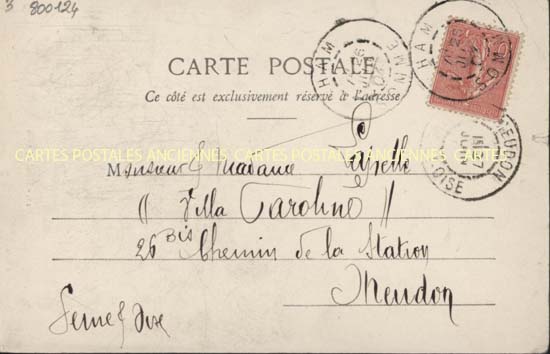 3 800124
CARTE POSTALE
Ce côté est exclusivement réservé à l'adresse
HAM SOMME
HAM SOMME
MEUDON OISE
CARTES POSTALES ANCIENNES CARTES POSTALES ANCIENNES CARTES
Monsieur & Madame
"Villa Caroline"
26 Bis Chemin de la Station
Meudon
Seine & Oise